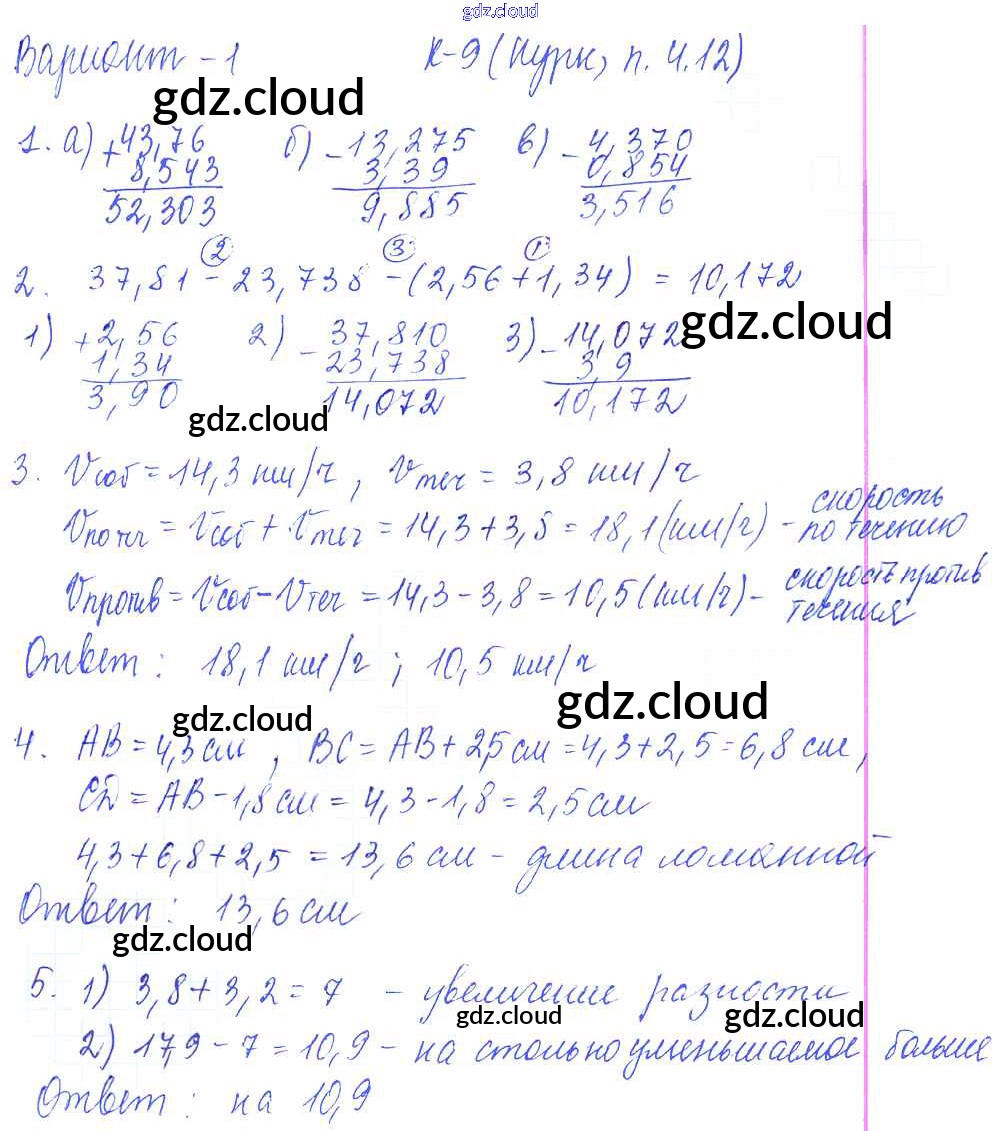 gdz.cloud
Вариант - 1 К-9 (Нурк, п. 4.12)
gdz.cloud
1. а) + 43,76 б) - 13,275 в) - 4,370
8,543 3,39 0,854
52,303 9,885 3,516
2 3 1
2. 37,81 - 23,738 - (2,56 + 1,34) = 10,172
gdz.cloud
1) + 2,56 2) - 37,810 3) - 14,072
1,34 23,738 3,9
3,90 14,072 10,172
gdz.cloud
3. Vсоб = 14,3 км/ч, Vтеч = 3,8 км/ч
Vпо теч = Vсоб + Vтеч = 14,3 + 3,8 = 18,1 (км/ч) - скорость
по течению
Vпротив = Vсоб - Vтеч = 14,3 - 3,8 = 10,5 (км/ч) - скорость против
течения
Ответ: 18,1 км/ч; 10,5 км/ч
gdz.cloud
gdz.cloud
4. AB = 4,3 см, BC = AB + 2,5 см = 4,3 + 2,5 = 6,8 см,
CD = AB - 1,8 см = 4,3 - 1,8 = 2,5 см
4,3 + 6,8 + 2,5 = 13,6 см - длина ломанной
Ответ: 13,6 см
gdz.cloud
5. 1) 3,8 + 3,2 = 7 - увеличение разности
gdz.cloud gdz.cloud
2) 17,9 - 7 = 10,9 - на столько уменьшаемое больше
Ответ: на 10,9